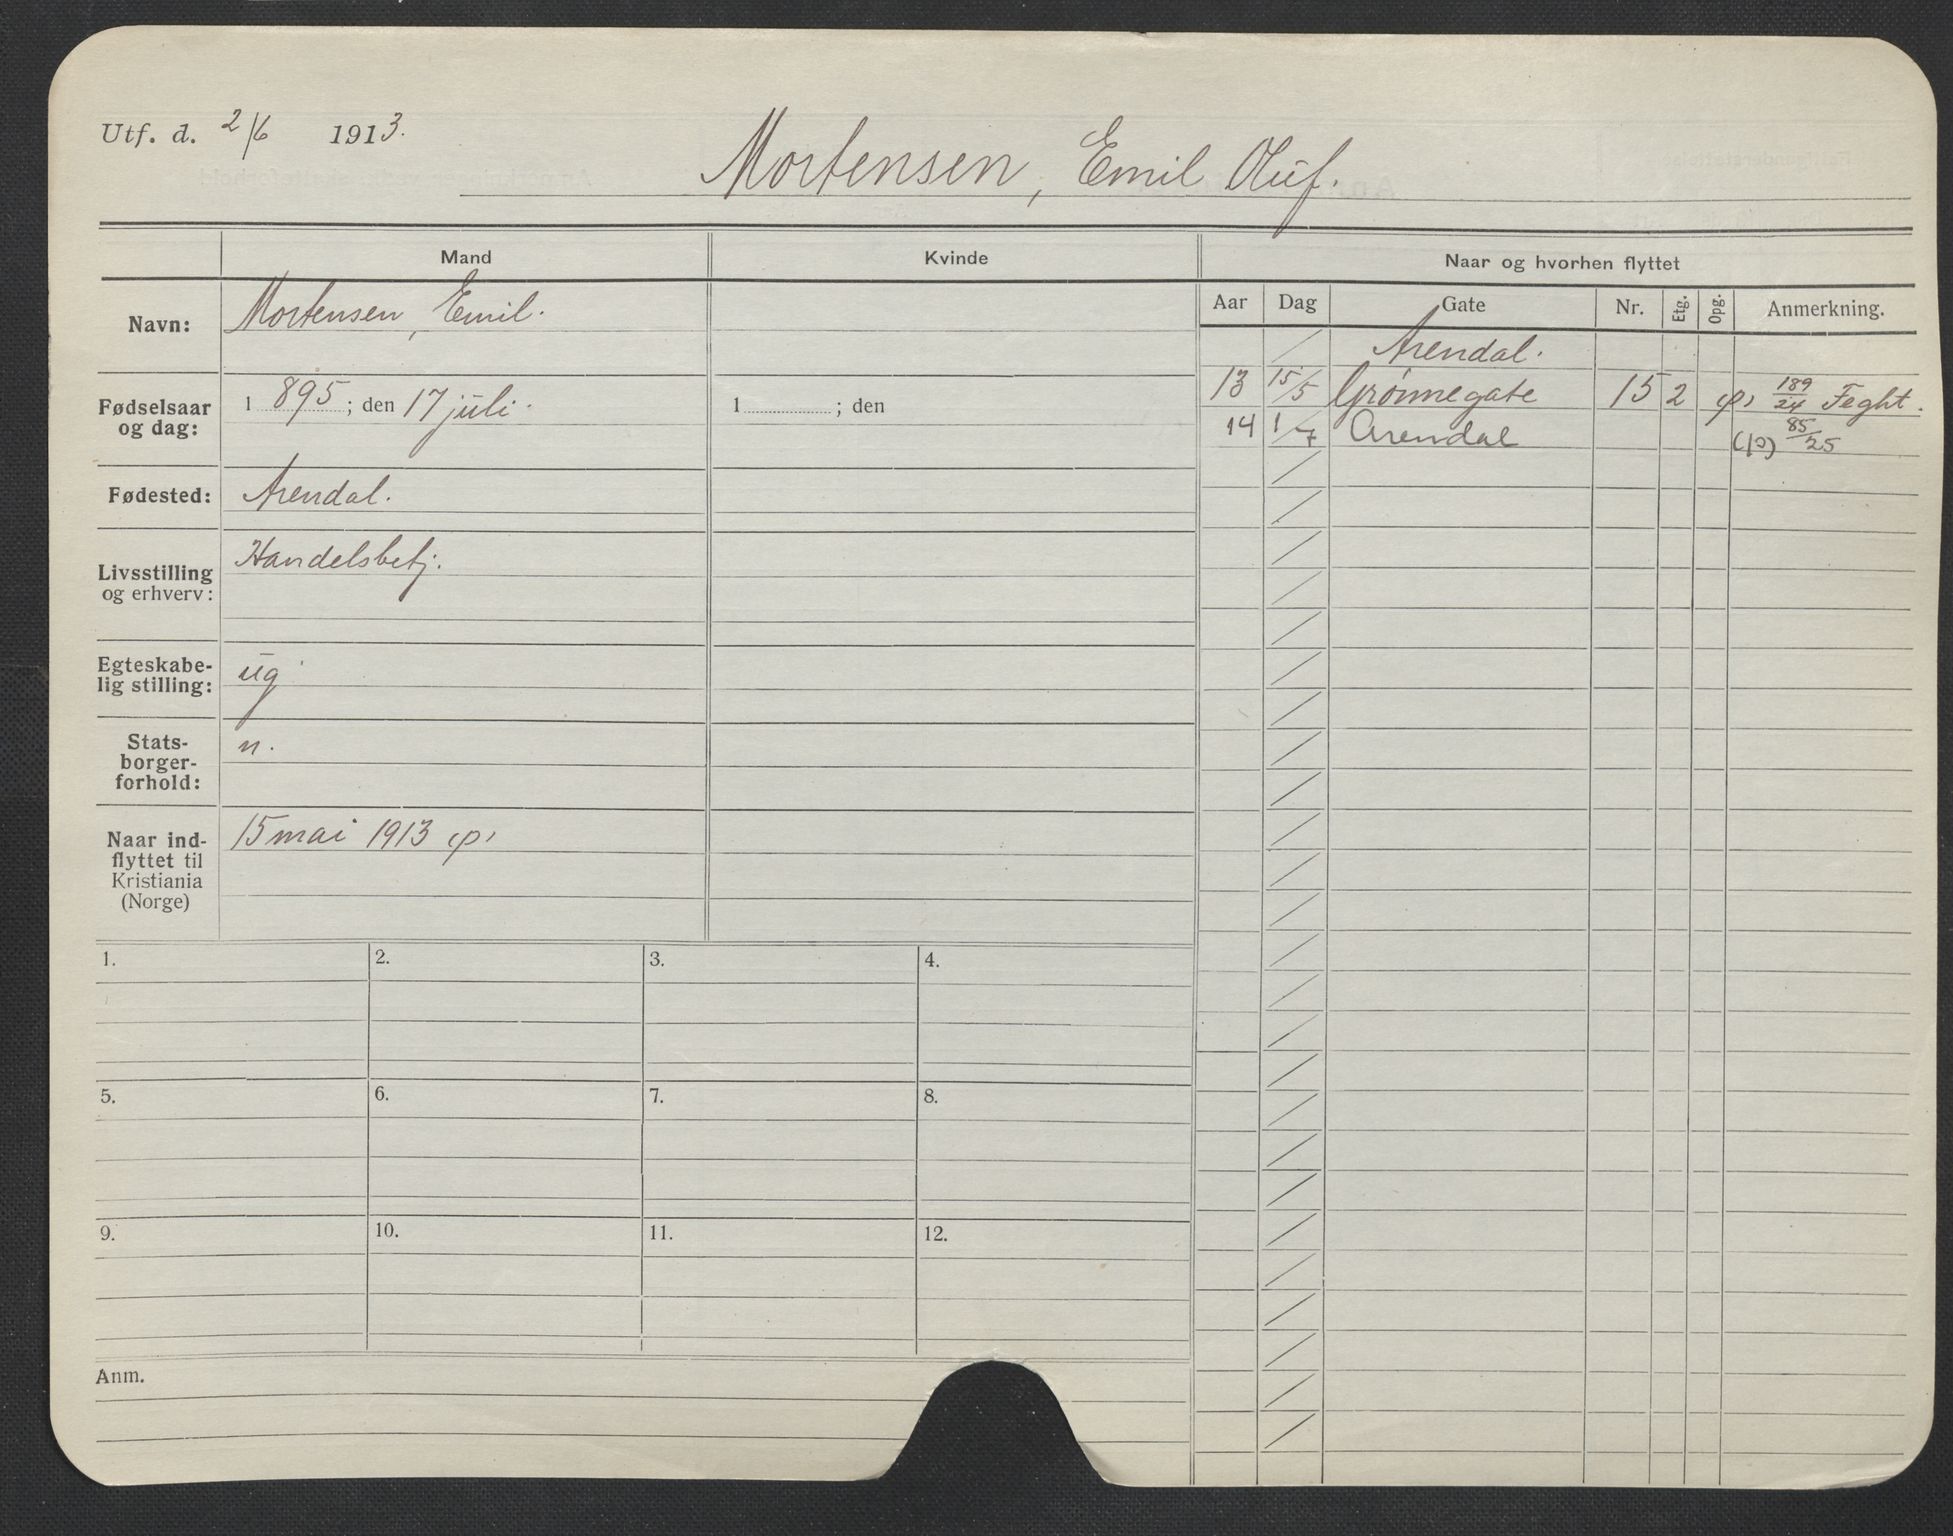 Utf. d. 2/6 1913.
Mortensen, Emil Oluf.
Mand
Kvinde
Naar og hvorhen flyttet
Aar Dag Gate Nr. Etg. Opg. Anmerkning.
Navn: Mortensen, Emil.
Fødselsaar og dag: 1895; den 17 juli.
1 ; den
Fødested: Arendal.
Livsstilling og erhverv: Handelsbetj.
Egteskabe-
lig stilling: ug
Stats-
borger-
forhold: n.
Naar ind-
flyttet til
Kristiania
(Norge) 15 mai 1913 (p)
Arendal.
13 15/5 Grønnegate 15 2 (p) 189/24 Feght.
14 1/7 Arendal (p) 85/25
1. 2. 3. 4.
5. 6. 7. 8.
9. 10. 11. 12.
Anm.